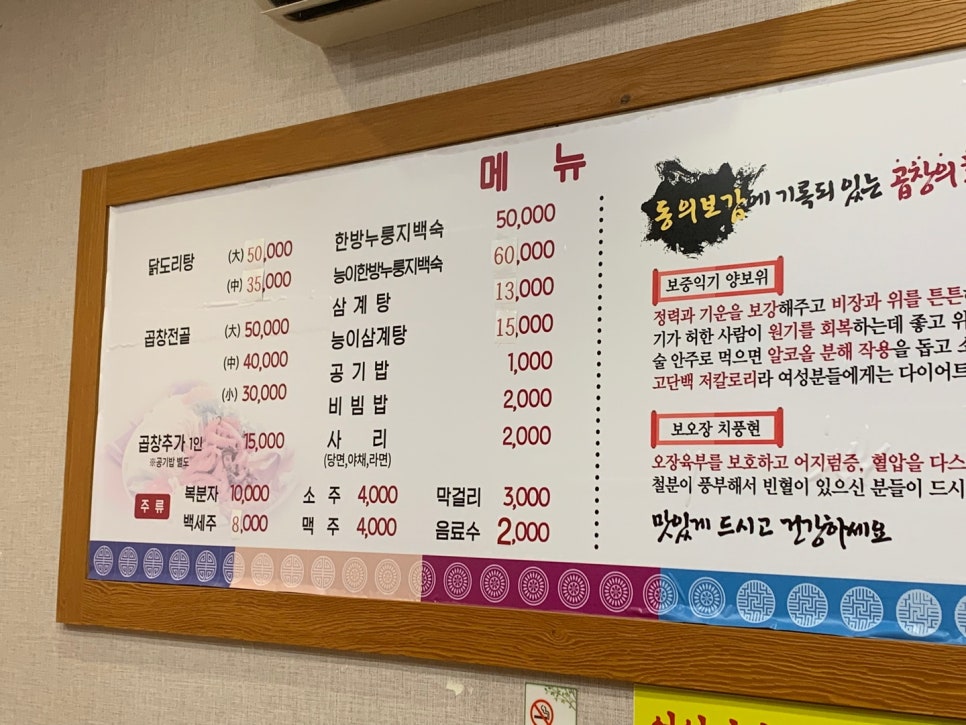 메 뉴
닭도리탕 (大) 50,000
(中) 35,000
곱창전골 (大) 50,000
(中) 40,000
(小) 30,000
곱창추가 1인 15,000
※공기밥 별도
한방누룽지백숙 50,000
능이한방누룽지백숙 60,000
삼 계 탕 13,000
능이삼계탕 15,000
공 기 밥 1,000
비 빔 밥 2,000
사 리 2,000
(당면,야채,라면)
주 류
복분자 10,000 소 주 4,000 막걸리 3,000
백세주 8,000 맥 주 4,000 음료수 2,000
동의보감에 기록되 있는 곱창의
보중익기 양보위
정력과 기운을 보강해주고 비장과 위를 튼튼
기가 허한 사람이 원기를 회복하는데 좋고 위
술 안주로 먹으면 알코올 분해 작용을 돕고
고단백 저칼로리라 여성분들에게는 다이어트
보오장 치풍현
오장육부를 보호하고 어지럼증, 혈압을 다스
철분이 풍부해서 빈혈이 있으신 분들이 드시
맛있게 드시고 건강하세요